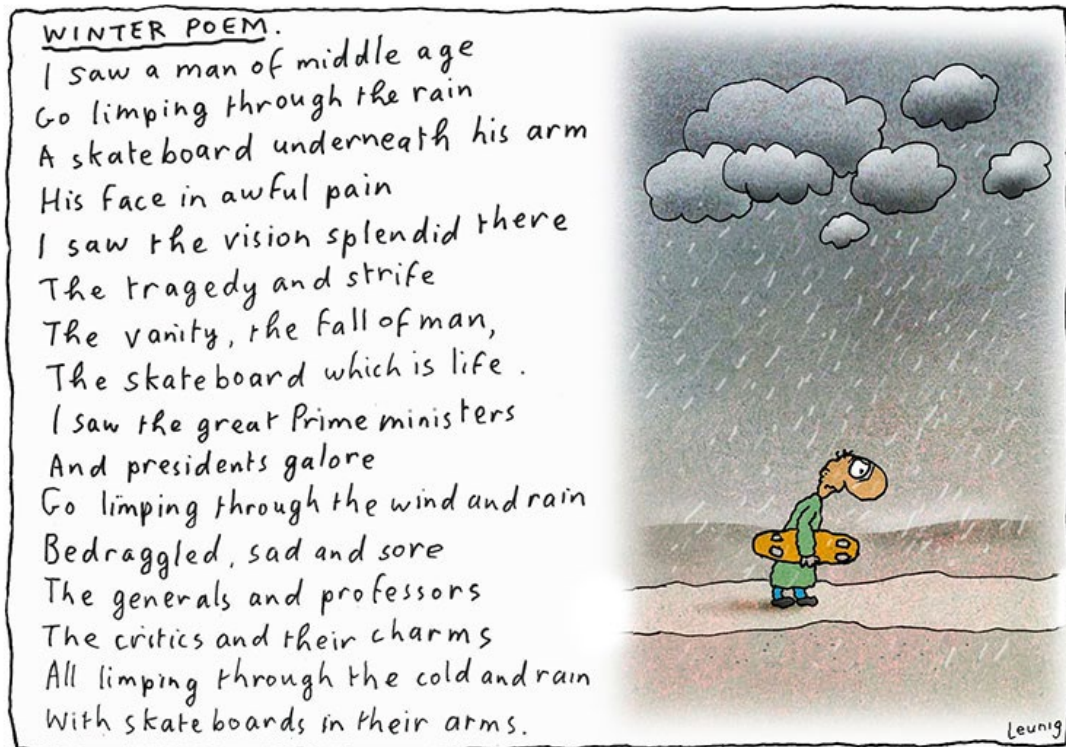 WINTER POEM.
I saw a man of middle age
Go limping through the rain
A skateboard underneath his arm
His face in awful pain
I saw the vision splendid there
The tragedy and strife
The vanity, the fall of man,
The skateboard which is life.
I saw the great Prime ministers
And presidents galore
Go limping through the wind and rain
Bedraggled, sad and sore
The generals and professors
The critics and their charms
All limping through the cold and rain
With skateboards in their arms.
Leunig